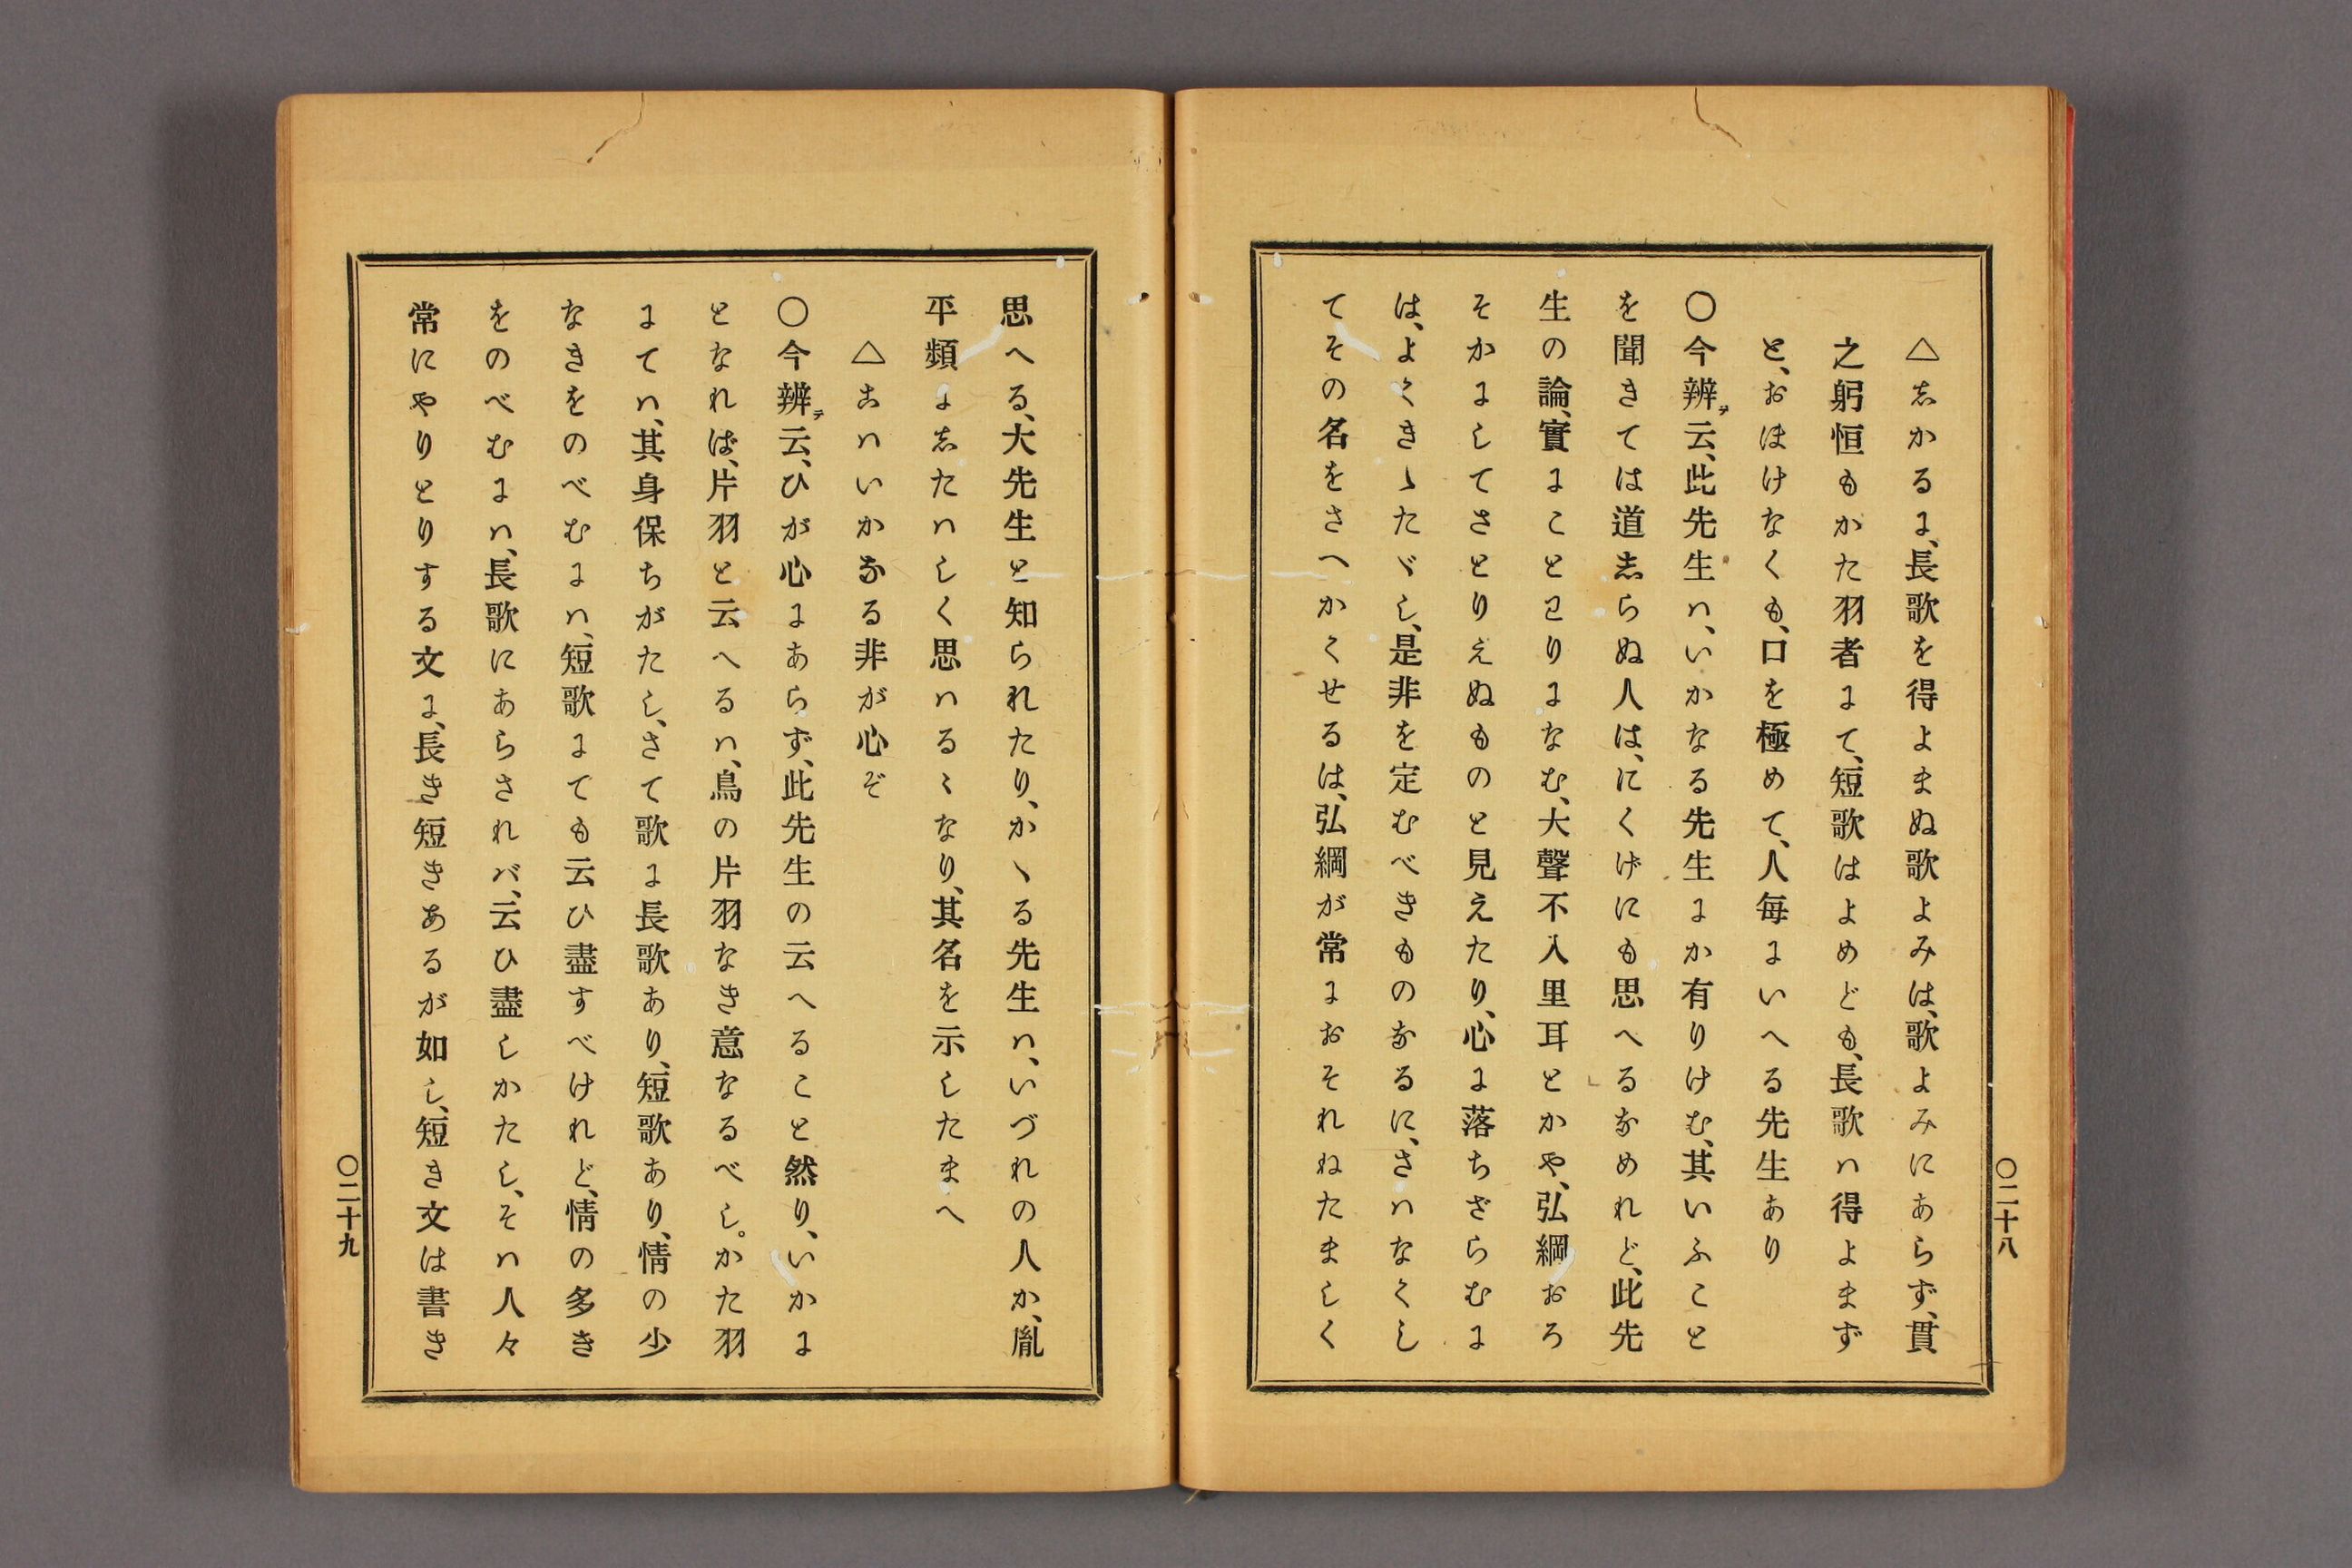 △志かるに、長歌を得よまぬ歌よみは、歌よみにあらず、貫
之躬恒もかた羽者にて、短歌はよめども、長歌ハ得よまず
と、おほけなくも、口を極めて、人毎にいへる先生あり
〇今辨テ云、此先生ハ、いかなる先生にか有りけむ、其いふこと
を聞きては道志らぬ人は、にくげにも思へるなめれど、此先
生の論、實にことわりになむ、大聲不入里耳とかや、弘綱おろ
そかにしてさとりえぬものと見えたり、心に落ちざらむに
は、よくきゝたゞし、是非を定むべきものなるに、さハなくし
てその名をさへかくせるは、弘綱が常におそれねたましく
〇二十八
思へる、大先生と知られたり、かゝる先生ハ、いづれの人か、胤
平頻にしたハしく思ハるゝなり、其名を示したまへ
△こハいかなる非が心ぞ
〇今辨テ云、ひが心にあらず、此先生の云へること然り、いかに
となれば、片羽と云へるハ、鳥の片羽なき意なるべし。かた羽
にてハ、其身保ちがたし、さて歌に長歌あり、短歌あり、情の少
なきをのべむにハ、短歌にても云ひ盡すべけれど、情の多き
をのべむにハ、長歌にあらされバ、云ひ盡しかたし、そハ人々
常にやりとりする文に、長き短きあるが如し、短き文は書き
〇二十九